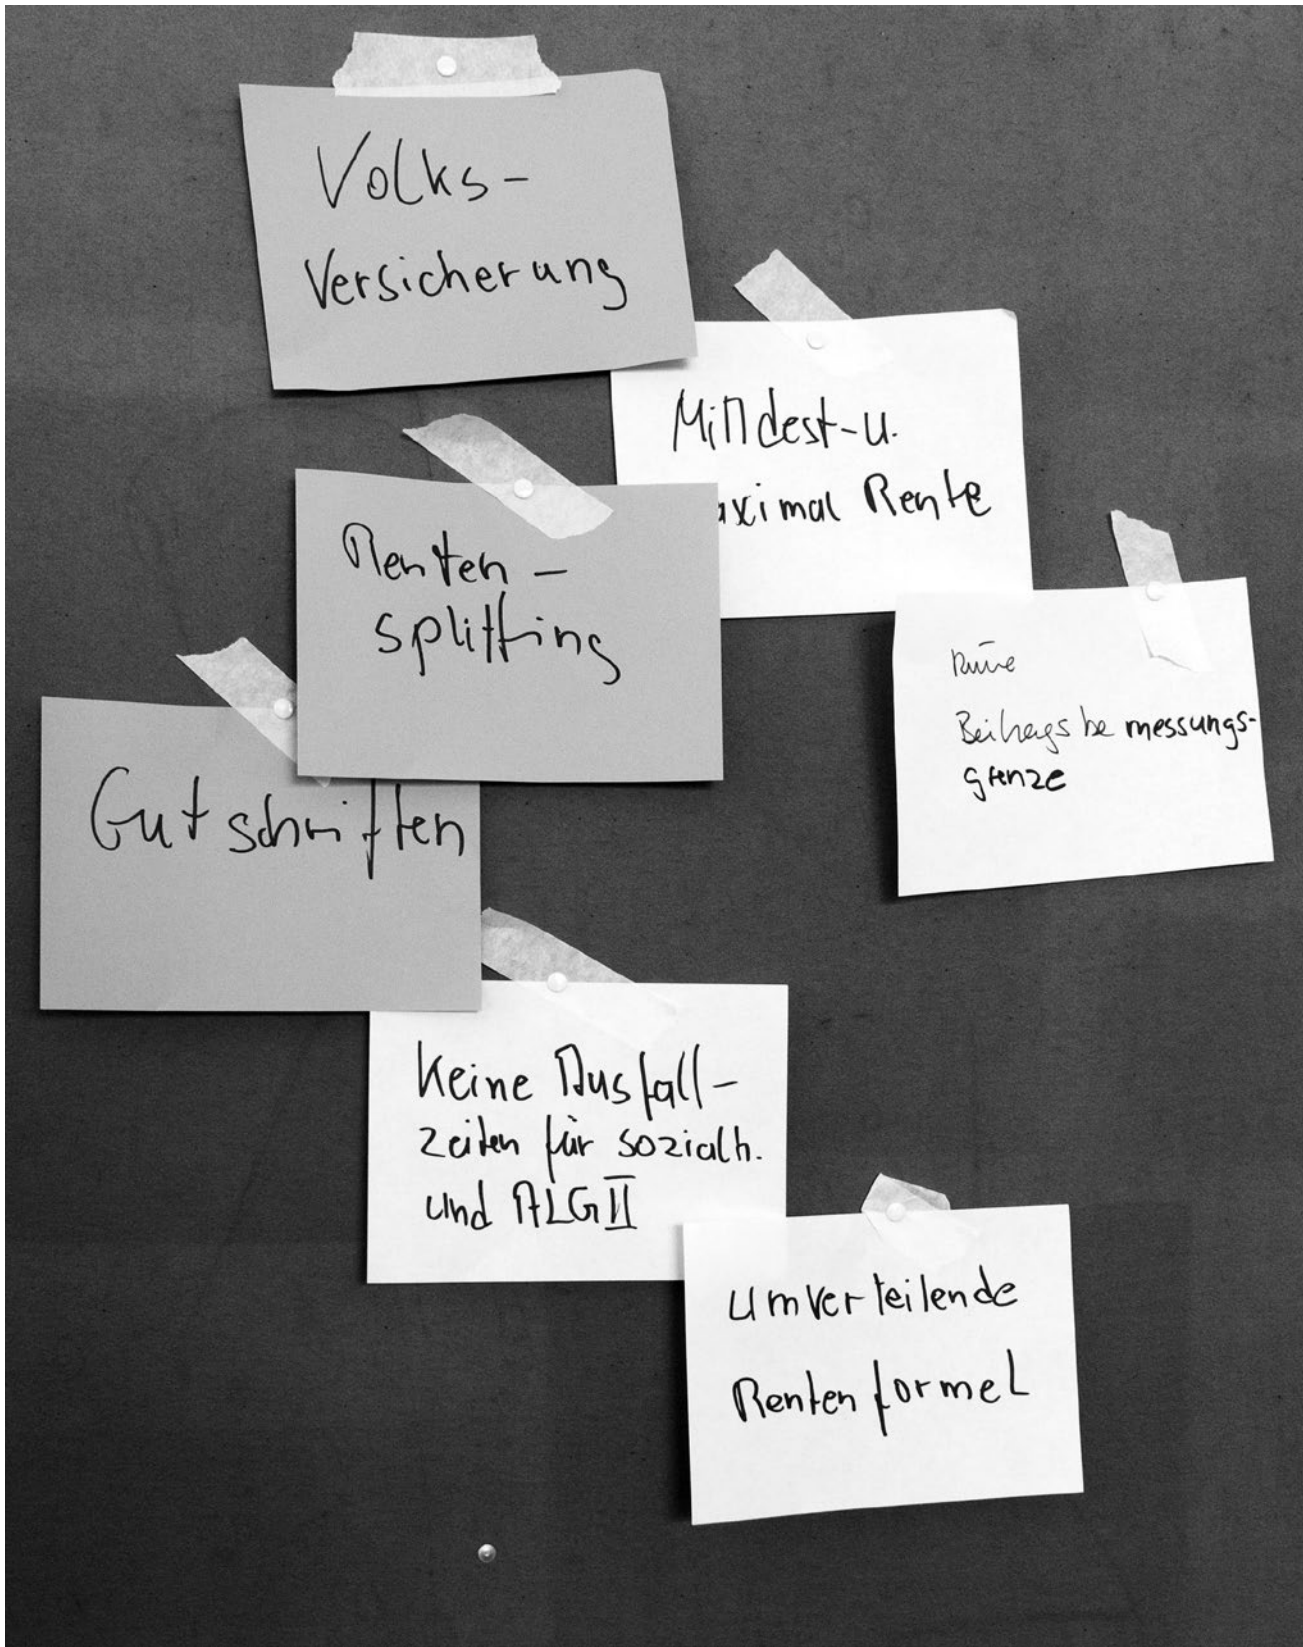 Volks-
Versicherung
Mindest-u.
aximal Rente
Renten-
splitting
keine
Beitragsbemessungs-
grenze
Gutschriften
Keine Ausfall-
zeiten für Sozialh.
und ALG II
umverteilende
Rentenformel